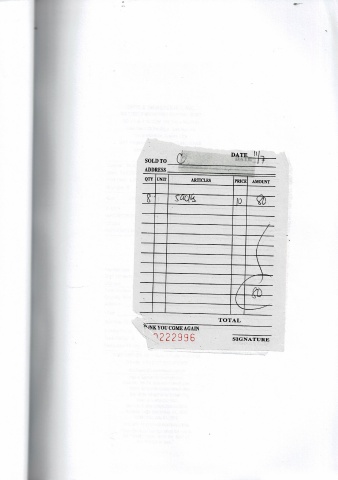 DATE 11/7
SOLD TO
ADDRESS
QTY UNIT ARTICLES PRICE AMOUNT
8 10 80
80
TOTAL
NK YOU COME AGAIN
0222996
SIGNATURE